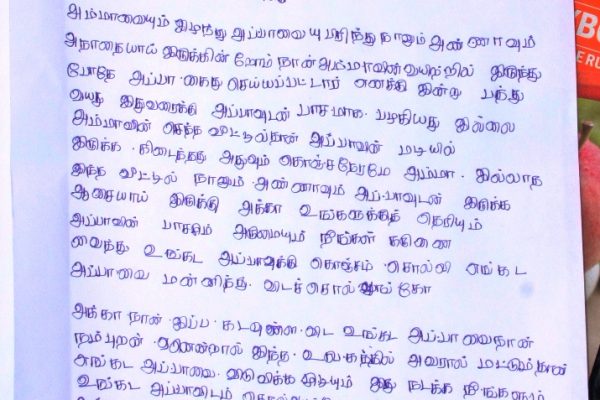 அம்மாவையும் இழந்து அப்பாவையு பறிந்து நானும் அண்ணாவும்
அநாதையாய் இருக்கின்றோம் நான் அம்மாவின் வயிற்றில் இருந்து
போதே அப்பா கைது செய்யப்பட்டார் எனக்கு இன்று பத்து
வயது இதுவரைக்கு அப்பாவுடன் பாசமாக பழகியது இல்லை
அம்மாவின் செத்த வீட்டில்தான் அப்பாவின் மடியில்
இருக்க கிடைத்தது அதுவும் கொஞ்சநேரமே அம்மா இல்லாத
இந்த வீட்டில் நானும் அண்ணாவும் அப்பாவுடன் இருக்க
ஆசையாய் இருக்கு அக்கா உங்களுக்குத் தெரியும்
அப்பாவின் பாசமும் அருமையும் நீங்கள்
வைத்து உங்கட அப்பாவுக்கு கொஞ்சம் சொல்லி எங்கட
அப்பாவை மன்னித்து விடச்சொல்லுங்கோ
அக்கா நான் இப்ப கடவுளை விட உங்கட அப்பாவைதான்
நம்புறன் ஏனென்றால் இந்த உலகத்தில் அவரால் மட்டும்தான்
எங்கட அப்பாவை விடுவிக்க முடியும் இது நடக்க நீங்களும்
உங்கட அப்பாவிடம்